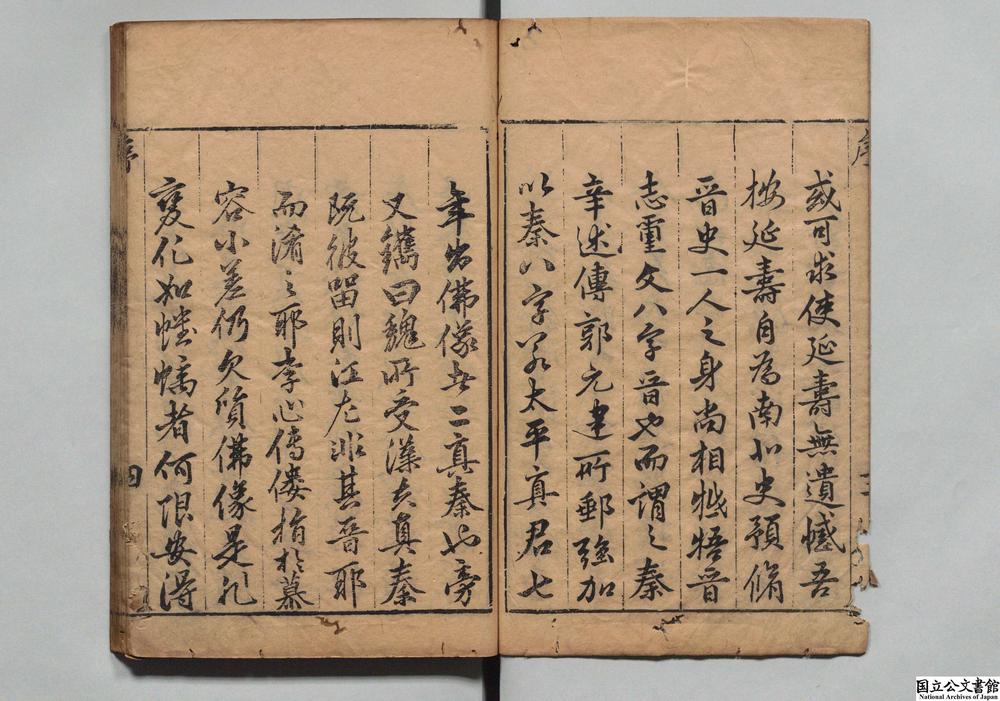 或可求使延壽無遺憾吾
按延壽自為南北史預脩
晉史一人之身尚相牴牾晉
志璽文八字晉也而謂之秦
辛述傳郭元建所郵強加
以秦八字若太平真君七
年出佛像者二真秦也旁
又鐫曰魏所受漢真秦
既彼留則江左非其晉耶
而淆之耶李心傳僂指於慕
容小差仍欠質佛像是非
變化如蟪蠕者何限安得
序
序
四
国立公文書館
National Archives of Japan